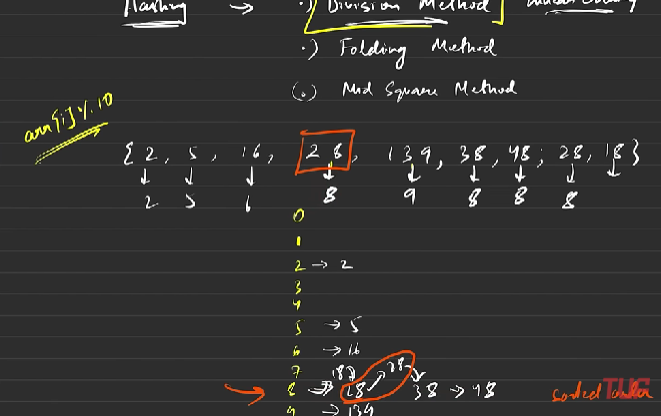 Hashing → .) Division Method
.) Folding Method
(.) Mid Square Method
arr[i]%10
{2, 5, 16, 28, 139, 38, 48, 28, 18}
2 5 6 8 9 8 8 8
0
1
2 → 2
3
4
5 → 5
6 → 16
7
8 → 18 → 28 → 28 → 38 → 48
9 → 139
sorted order
TUF